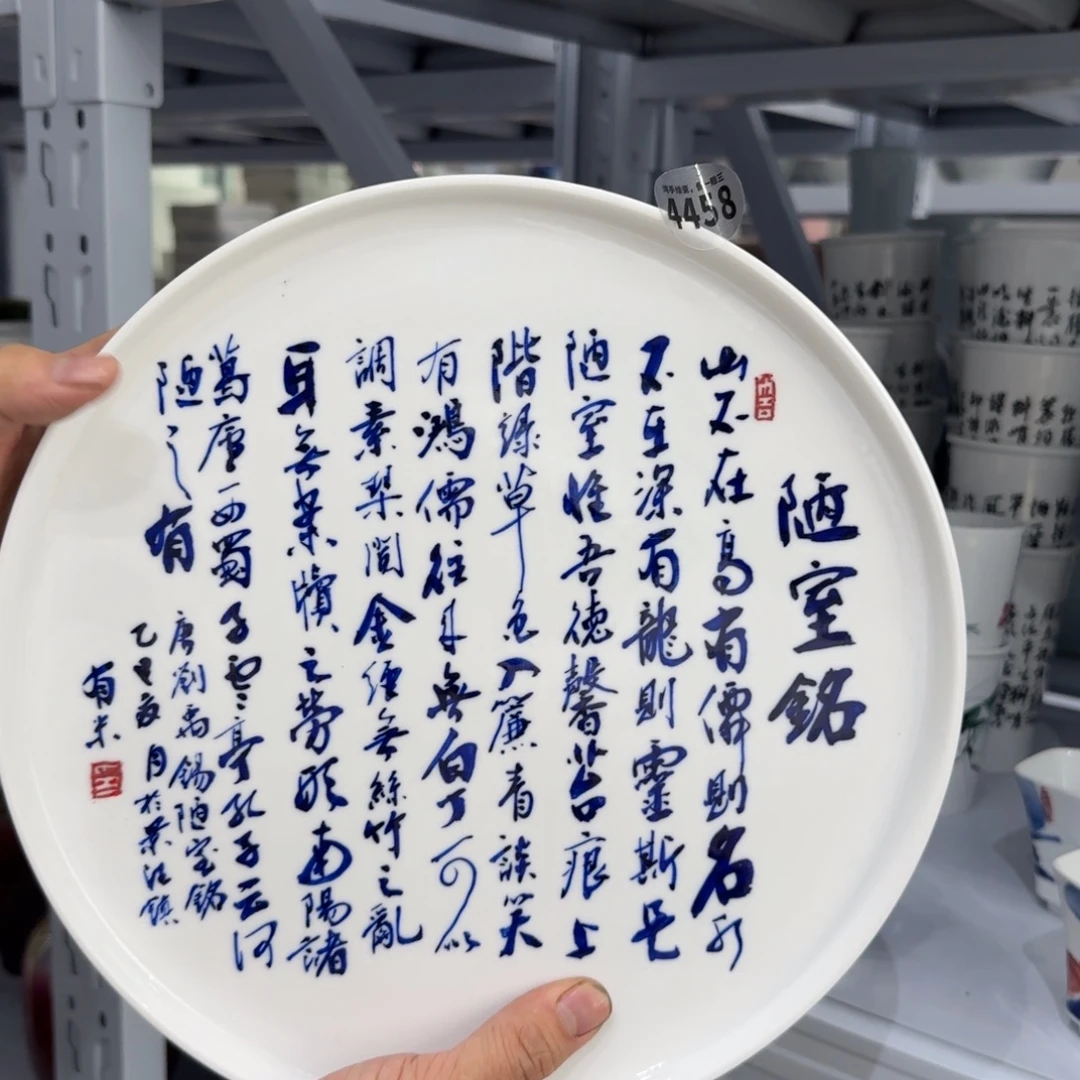 4458
陋室銘
山不在高有僊則名水
不在深有龍則靈斯是
陋室惟吾德馨苔痕上
階綠草色入簾青談笑
有鴻儒往来無白丁可以
調素琴閱金經無絲竹之亂
耳無案牘之勞形南陽諸
葛廬西蜀子雲亭孔子云何
陋之有
唐劉禹錫陋室銘
乙巳夏月於景德鎮
有米